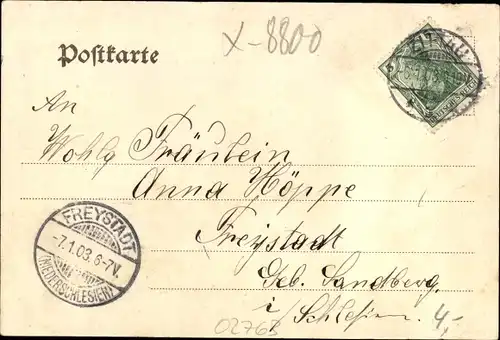 X-8800
Postkarte
ZITTAU
An
Wohlg Fräulein
Anna Höppe
Freystadt
FREYSTADT
-7.1.03.6-7V.
(NIEDERSCHLESIEN)
Geb. Sandberg.
i/Schlesien.
4,-
02763